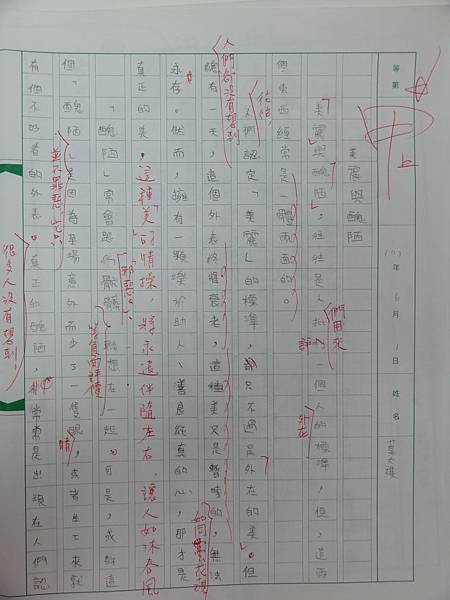 等第
中上
107年 6月 1日 姓名
美麗與醜陋
「美麗與醜陋」,往往是人批一個人的標準,但,這兩
們用來
評
外在
個東西經常是一體兩面的。
往往,
人們認定「美麗」的標準,只不過是外在的美。但
人們卻沒有想到
總有一天,這個外表終將衰老,這種美只是暫時的,無法
如同曇花一現
永存。然而,擁有一顆樂於助人、善良純真的心,那才是
真正的美,這種「美」的情操,將永遠伴隨左右,讓人如沐春風
「醜陋」常會跟「骯髒
邪惡
」聯想在一起。可是,或許這
個「醜陋」是因為車禍意外而少了一隻眼
睛
,或者生下來就
並不罪惡
有個不好看的外表。真正的醜陋,
常常是出現在人們認
很多人沒有想到,